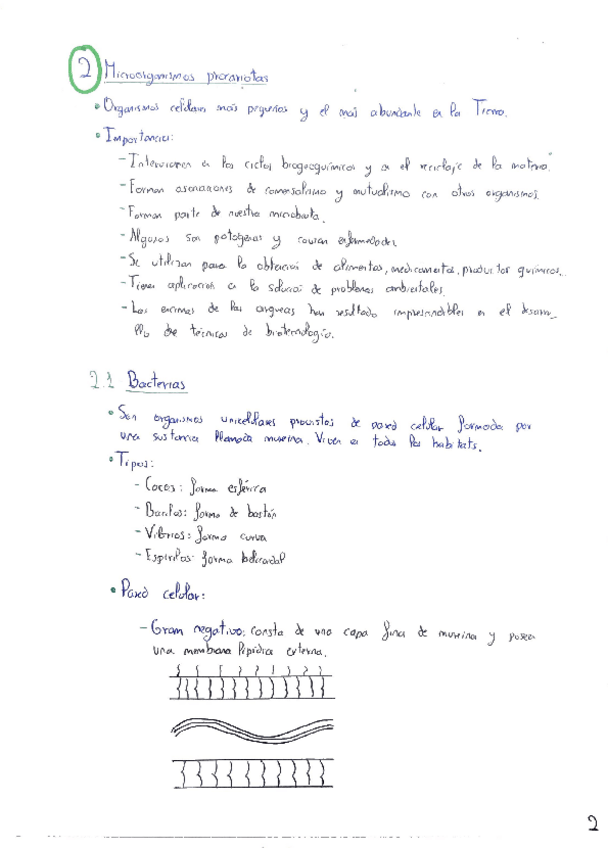 2 Microorganismos procariotas
• Organismos celulares más pequeños y el más abundante en la Tierra.
• Importancia:
- Intervienen en los ciclos biogeoquímicos y en el reciclaje de la materia.
- Forman asociaciones de comensalismo y mutualismo con otros organismos.
- Forman parte de nuestra microbiota.
- Algunos son patógenos y causan enfermedades
- Se utilizan para la obtención de alimentos, medicamentos, productos químicos...
- Tienen aplicación en la solución de problemas ambientales.
- Las enzimas de las arqueas han resultado imprescindibles en el desarro_
llo de técnicas de biotecnología.
2.1 Bacterias
• Son organismos unicelulares provistos de pared celular formada por
una sustancia llamada mureína. Viven en todos los habitats.
• Tipos:
- Cocos: forma esférica
- Bacilos: forma de bastón
- Vibrios: forma curva
- Espirilos: forma helicoidal
• Pared celular:
- Gram negativo: consta de una capa fina de mureína y posee
una membrana lipídica externa.
2